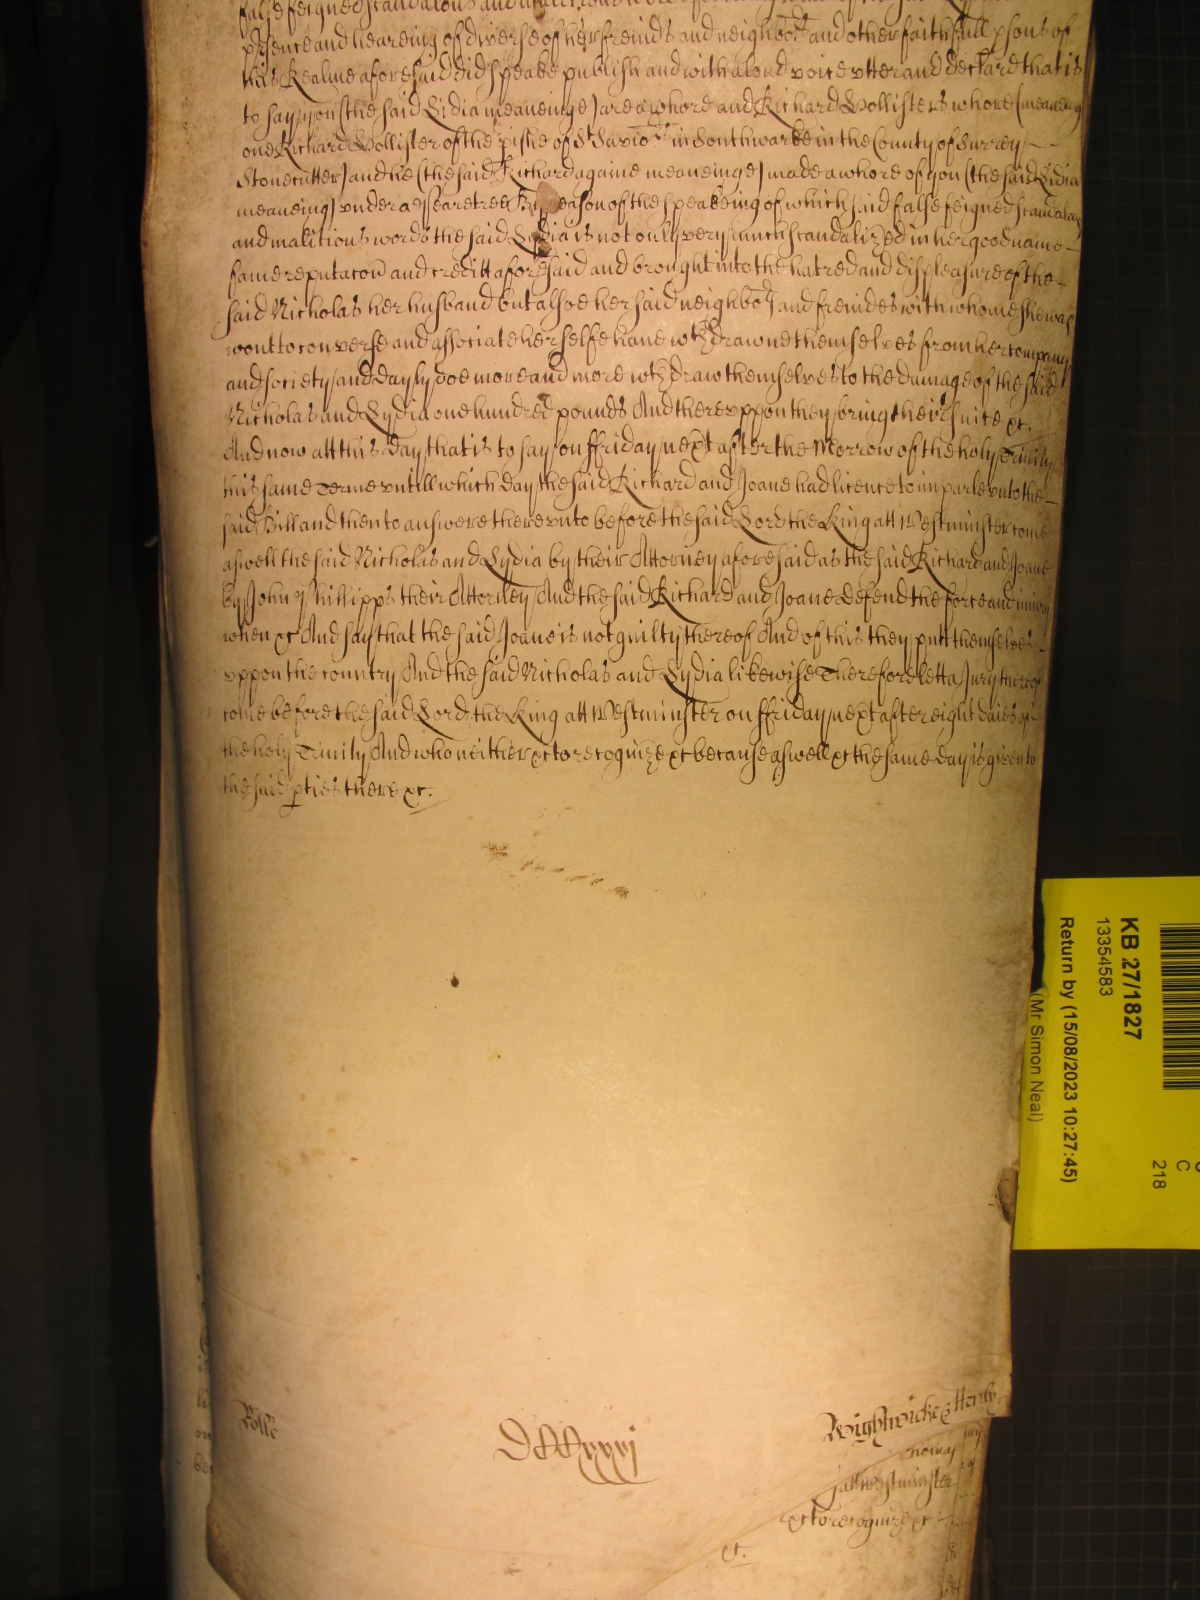 false feigned scandalous and malitious words
presence and heareing of diverse of her freinds and neighbors and other faithfull psons of
this Realme aforesaid did speake publish and with a loud voice utter and declard that is
to say you (the said Lidia meaneinge) are a whore and Richard Hollisters whore (meaneing
one Richard Hollister of the pishe of St Savior in Southwarke in the County of Surrey
Stonecutter) and he (the said Richard againe meaneinge) made a whore of you (the said Lidia
meaneing) under a Pearetree By reason of the speakeing of which said false feigned scandalous
and malitious words the said Lydia is not only very much scandalized in her good name
fame reputacon and creditt aforesaid and brought into the hatred and displeasure of the
said Nicholas her husband but alsoe her said neighbors and freindes with whome she was
wont to converse and associate herselfe have wthdrawne themselves from her company
and society and dayly doe more and more wthdraw themselves to the damage of the said
Nicholas and Lydia one hundred pounds And thereuppon they bring their suite &c.
And now att this day that is to say on ffriday next after the Morrow of the holy Trinity
this same Terme untill which day the said Richard and Joane had licence to imparle unto the
said Bill and then to answere thereunto before the said Lord the King att Westminster come
aswell the said Nicholas and Lydia by their Attorney aforesaid as the said Richard and Joane
by John Phillipps their Attorney And the said Richard and Joane defend the force and iniury
when &c And say that the said Joane is not guilty thereof And of this they putt themselves
uppon the country And the said Nicholas and Lydia likewise Therefore lett a Jury thereof
come before the said Lord the King att Westminster on ffriday next after eight daies of
the holy Trinity And who neither &c to recognize &c because aswell &c the same day is given to
the said pties there &c.
Rolle
DCCCxxxj
Wightwicke & Henly
att Westminster
&c to recognize &c
&c.
KB 27/1827
13354583
Return by (15/08/2023 10:27:45)
(Mr Simon Neal)
C
218